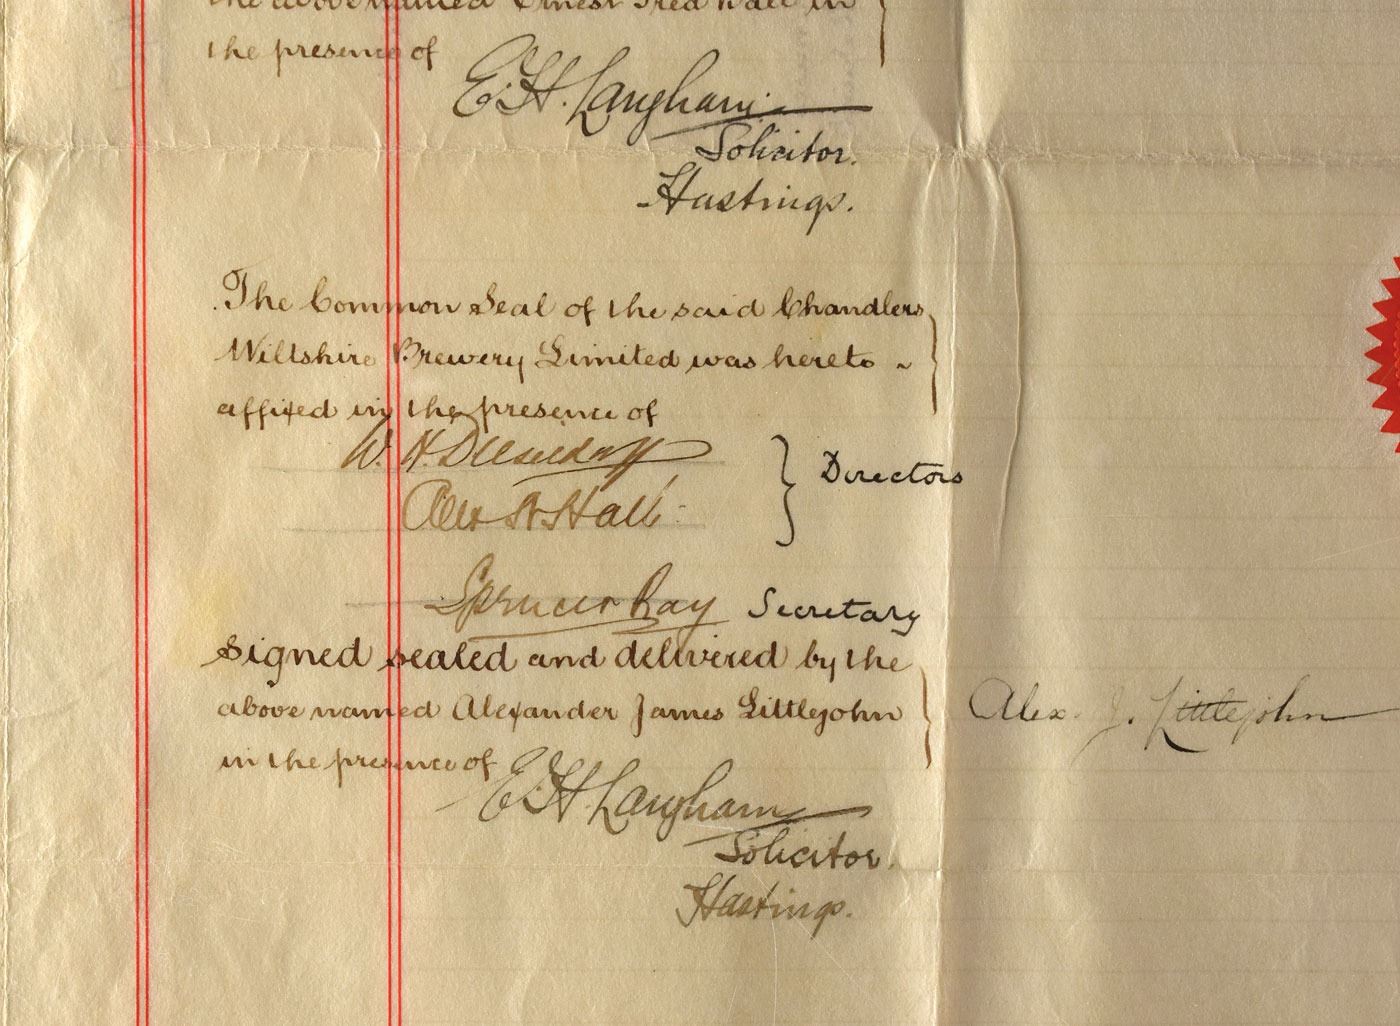 the above named Ernest Fred Hall in
the presence of
E. H. Langham
Solicitor.
Hastings.
The Common Seal of the said Chandlers
Wiltshire Brewery Limited was hereto
affixed in the presence of
W. H.
Directors
Hall
Spencer Ray Secretary
Signed sealed and delivered by the
above named Alexander James Littlejohn
Alex. J. Littlejohn
in the presence of
E. H. Langham
Solicitor.
Hastings.